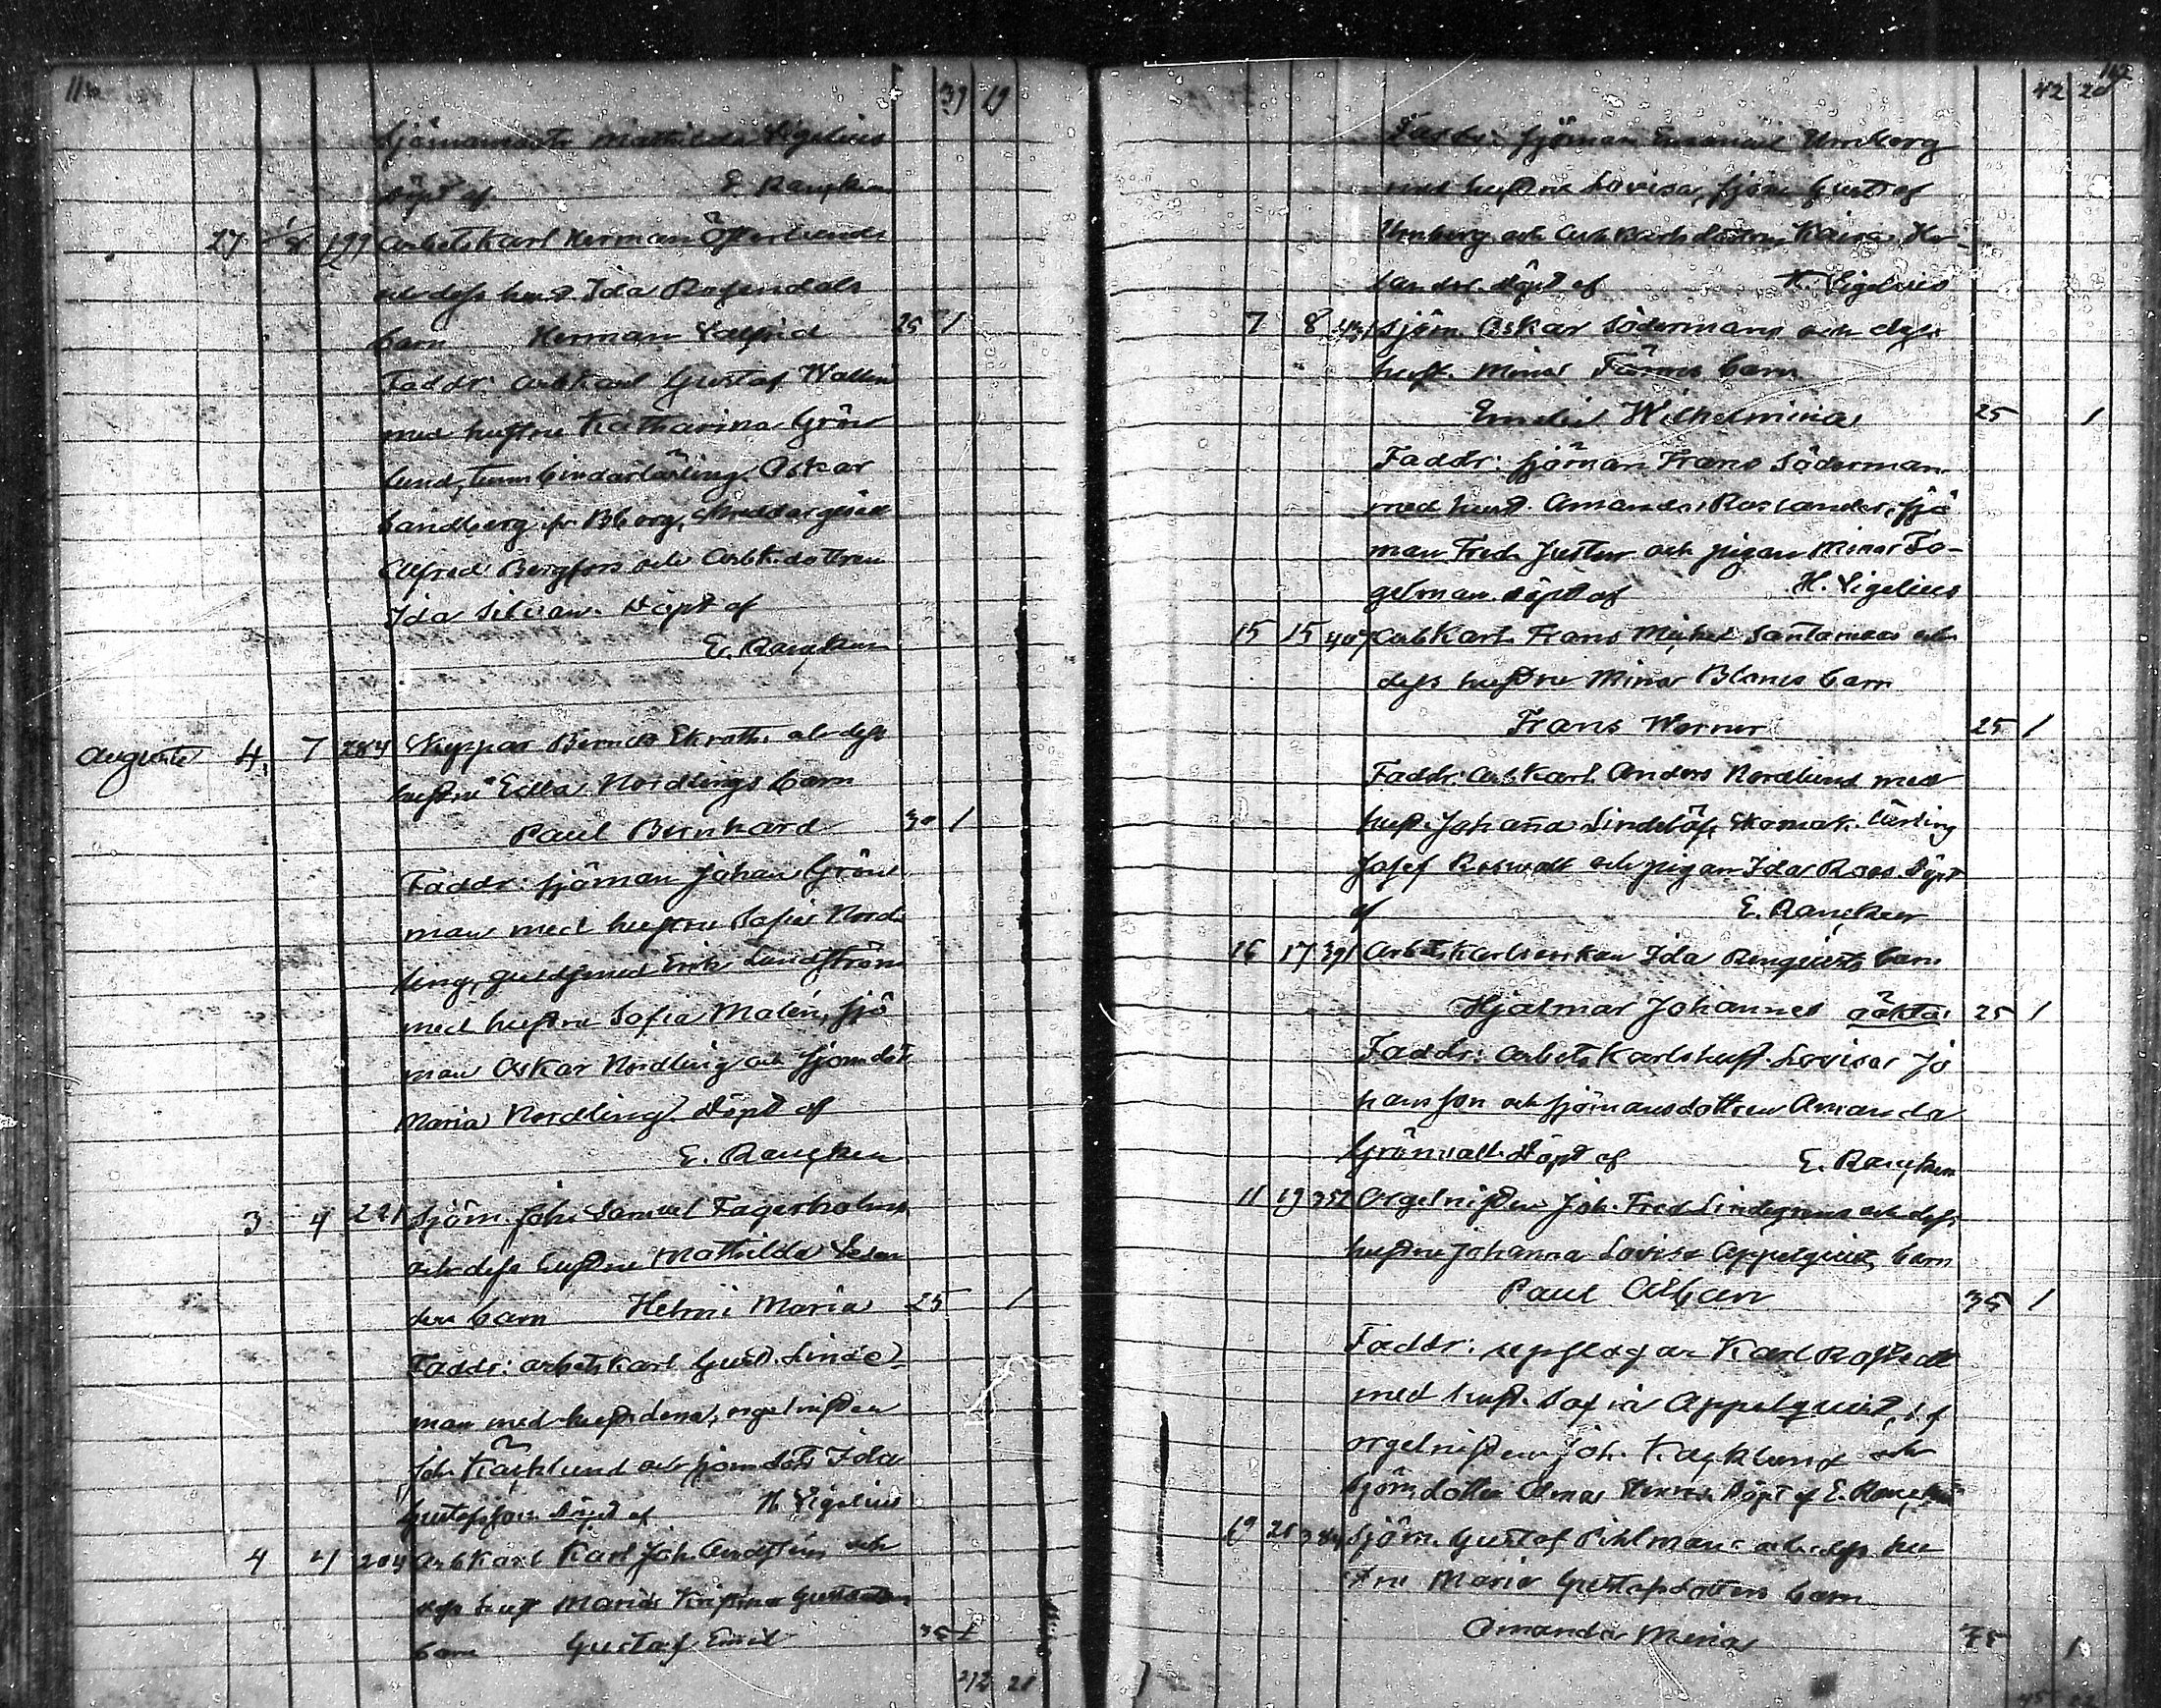 39 19
Sjömansdotr Mathilda Sigelius
döpt af E. Rancken
27 1/8 199 Arbetskarl Herman Österlunds
och dess hust. Ida Rosendals
barn Herman Valfrid 25 1
Faddr: arbkarl Gustaf Wallin
med hustru Katharina Grön
lund, tunnbindarlärling Oskar
Sandberg fr. Bborg, skreddargesäll
Alfred Bergfors och arbk.dottren
Ida Silvan. Döpt af
E. Rancken
Augusti 4 7 284 Kypper Berndt Ekroths och dess
hustru Edla Nordlings barn
Paul Bernhard 30 1
Faddr: sjöman Johan Grön
man med hustru Sofia Nord
ling, guldsmed Erik Lundström
med hustru Sofia Malén, sjö
man Oskar Nordling och sjömdot
Maria Nordling. Döpt af
E. Rancken
3 4 221 Sjöm. Joh. Samuel Fagerholms
och dess hustru Mathilda
ders barn Helmi Maria 25 1
Faddr: arbetskarl Gust. Linde
man med hustr Lena, orgelnisten
Joh. Käcklund och sjömdotr Ida
Gustafsson. Döpt af H. Sigelius
4 4 204 Arbkarl Karl Joh. och
dess hust Maria Kristina
barn Gustaf Emil 35 1
42 20
Faddr: sjöman Emanuel Umberg
med hustru Lovisa, sjöm. Gustaf
Umberg och arbkarlsdottren Kaisa He-
lander. Döpt af H. Sigelius
7 8 Sjöm. Oskar Södermans och dess
hust. Mina Färms barn
Emilia Wilhelmina 25 1
Faddr: sjöman Frans Söderman
med hust. Amanda Roslander, sjö
man Fred. Juslin och pigan Mina Fo-
gelman. Döpt af H. Sigelius
15 15 407 Arbkarl Frans Mickel Santamaas och
dess hustru Mina Bloms barn
Frans Werner 25 1
Faddr: arbkarl Anders Nordlund med
hust. Johanna Lindelöf, Skomak. lärling
Josef Roswall och pigan Ida Roos. Döpt
af E. Rancken
16 17 391 Arbetskarlsenkan Ida Renqvists barn
Hjalmar Johannes oäkta 25 1
Faddr: arbetskarlshust. Lovisa Jo
hansson och sjömansdottren Amanda
Grönvall. Döpt af E. Rancken
11 19 352 Orgelnisten Joh. Fred. Lindegrens och dess
hustru Johanna Lovisa Appelqvists barn
Paul Alban 35 1
Faddr: upsyog ar Karl Rostedt
med hust. Sofia Appelqvist, f.d.
orgelnisten Joh. Käcklund och
Sjömdotter Alma. Döpt af E. Rancken
19 20 Sjöm. Gustaf Pihlmans och dess hu
stru Maria Gustafsdotters barn
Amanda Mina 75 1